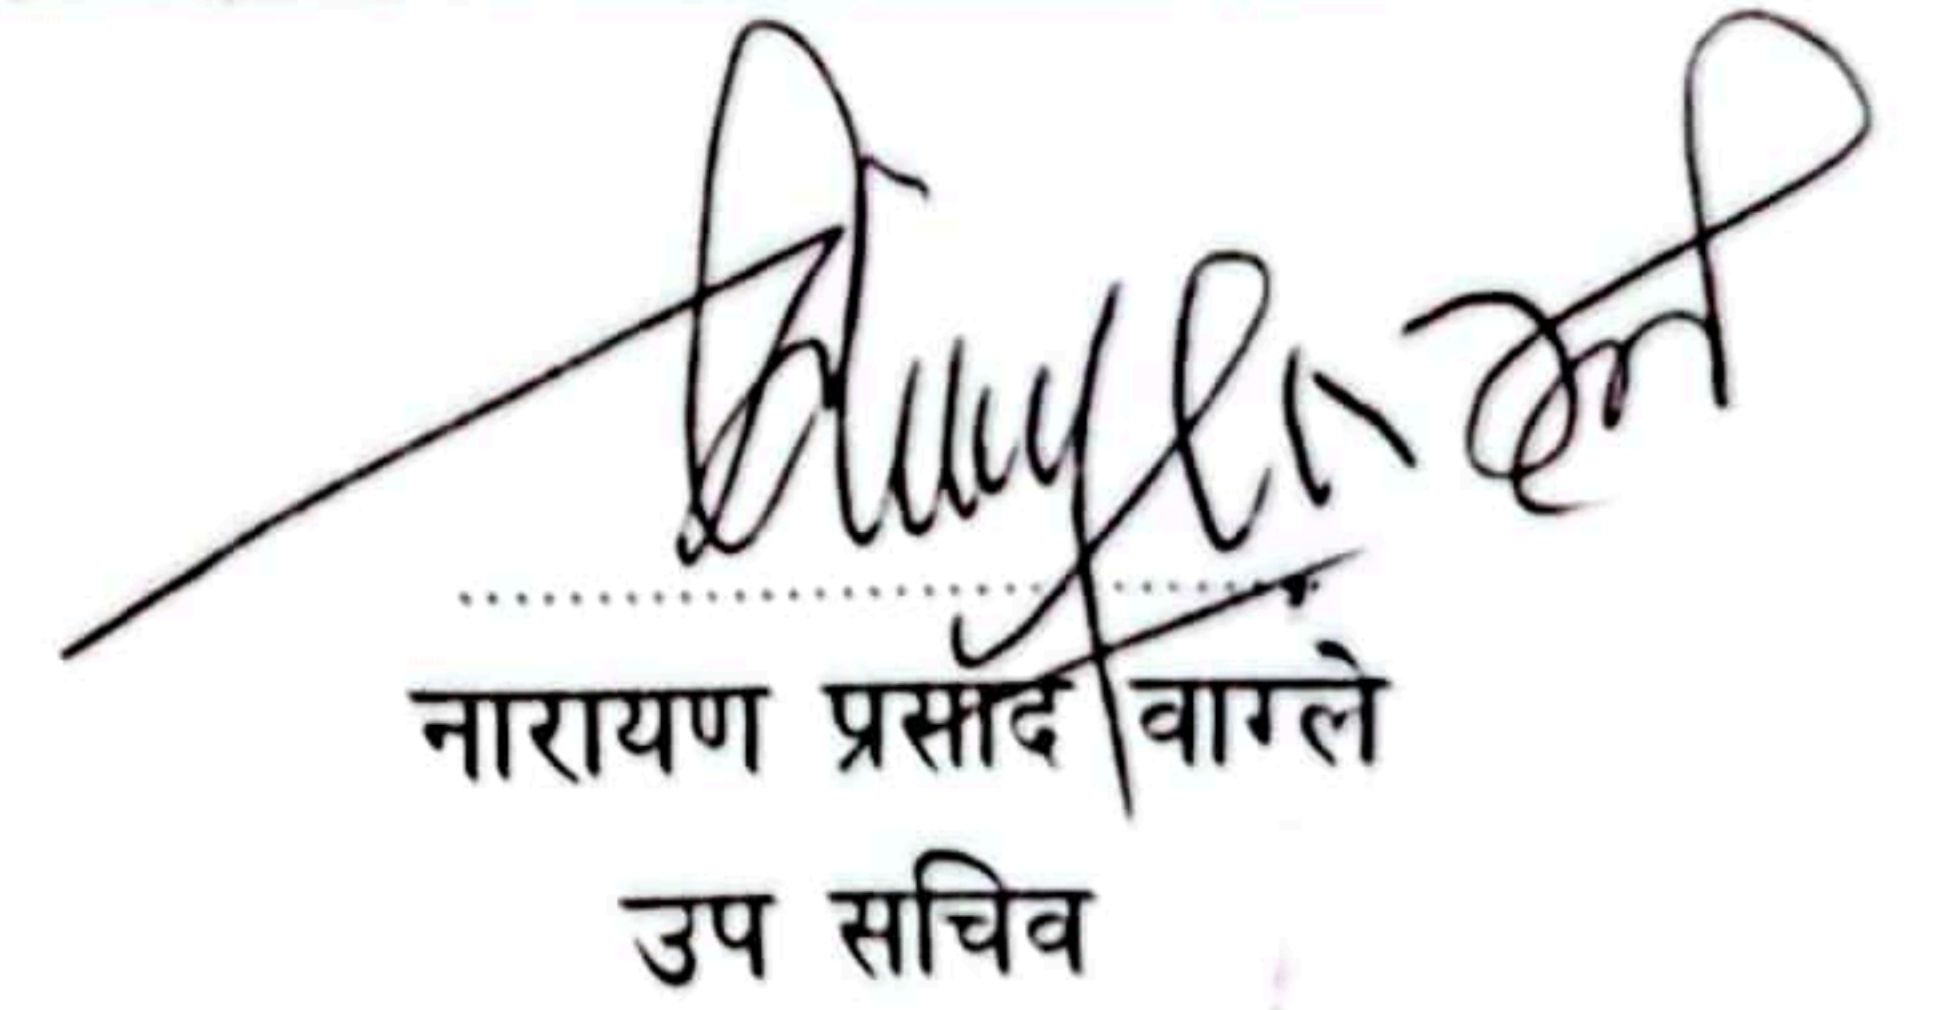 नारायण प्रसाद वाग्ले
उप सचिव